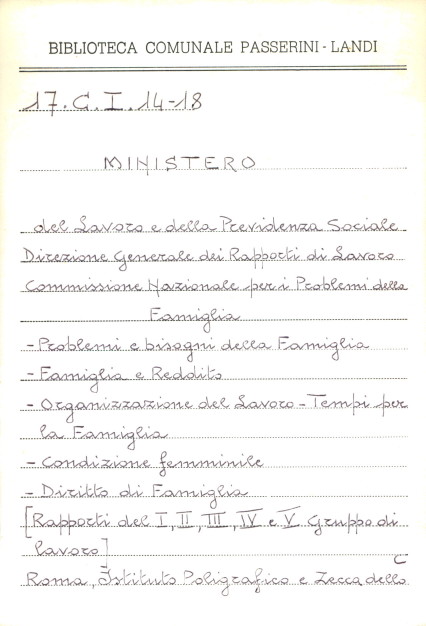 BIBLIOTECA COMUNALE PASSERINI - LANDI
17. C. I. 14-18
MINISTERO
del Lavoro e della Previdenza Sociale
Direzione Generale dei Rapporti di Lavoro
Commissione Nazionale per i Problemi della
Famiglia
- Problemi e bisogni della Famiglia
- Famiglia e Reddito
- Organizzazione del Lavoro - Tempi per
la Famiglia
- Condizione femminile
- Diritto di Famiglia
[Rapporti del I, II, III, IV e V Gruppo di
lavoro]
Roma, Istituto Poligrafico e Zecca dello